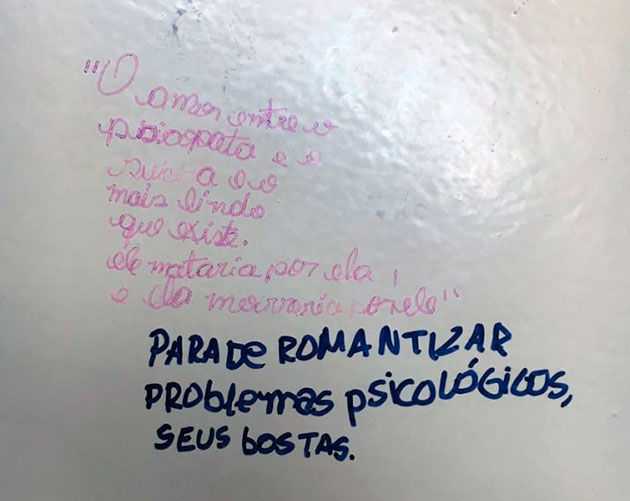 "O
amor entre o
psicopata e o
a é o
mais lindo
que existe.
ele mataria por ela,
e ela morreria por ele"
PARA DE ROMANTIZAR
PROBLEMAS PSICOLÓGICOS,
SEUS BOSTAS.